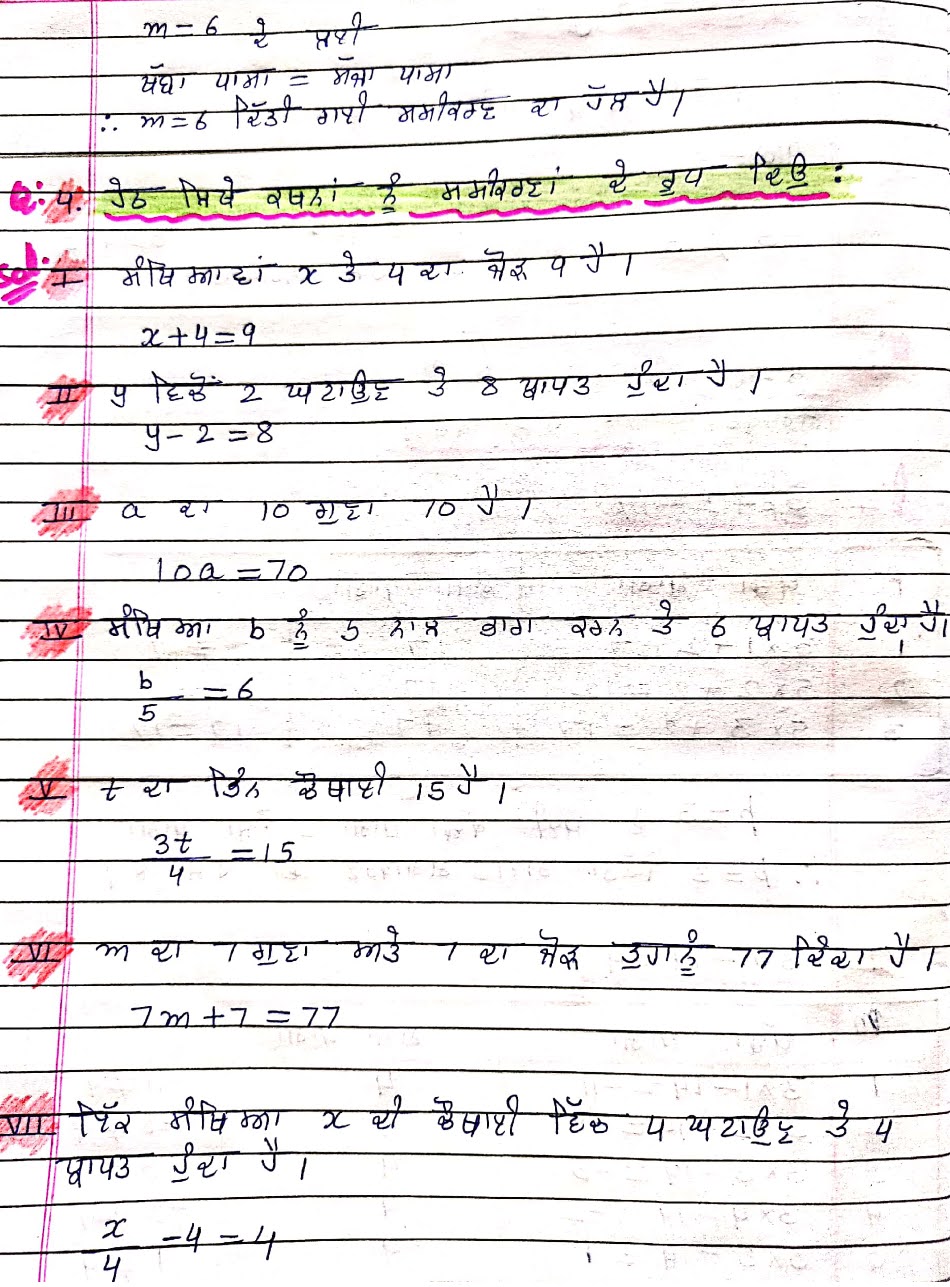 m = 6 ਦੇ ਲਈ
ਖੱਬਾ ਪਾਸਾ = ਸੱਜਾ ਪਾਸਾ
∴ m = 6 ਦਿੱਤੀ ਗਈ ਸਮੀਕਰਣ ਦਾ ਹੱਲ ਹੈ।
Q: 4. ਹੇਠ ਲਿਖੇ ਕਥਨਾਂ ਨੂੰ ਸਮੀਕਰਣਾਂ ਦੇ ਰੂਪ ਦਿਉ :
Sol: I ਸੰਖਿਆਵਾਂ x ਤੇ 4 ਦਾ ਜੋੜ 9 ਹੈ।
x + 4 = 9
II y ਵਿਚੋਂ 2 ਘਟਾਉਣ ਤੇ 8 ਪ੍ਰਾਪਤ ਹੁੰਦਾ ਹੈ।
y - 2 = 8
III a ਦਾ 10 ਗੁਣਾ 70 ਹੈ।
10a = 70
IV ਸੰਖਿਆ b ਨੂੰ 5 ਨਾਲ ਭਾਗ ਕਰਨ ਤੇ 6 ਪ੍ਰਾਪਤ ਹੁੰਦਾ ਹੈ।
b/5 = 6
V t ਦਾ ਤਿੰਨ ਚੌਥਾਈ 15 ਹੈ।
3t/4 = 15
VI m ਦਾ 7 ਗੁਣਾ ਅਤੇ 7 ਦਾ ਜੋੜ ਤੁਹਾਨੂੰ 77 ਦਿੰਦਾ ਹੈ।
7m + 7 = 77
VII ਇੱਕ ਸੰਖਿਆ x ਦੀ ਚੌਥਾਈ ਵਿੱਚ 4 ਘਟਾਉਣ ਤੇ 4
ਪ੍ਰਾਪਤ ਹੁੰਦਾ ਹੈ।
x/4 - 4 = 4